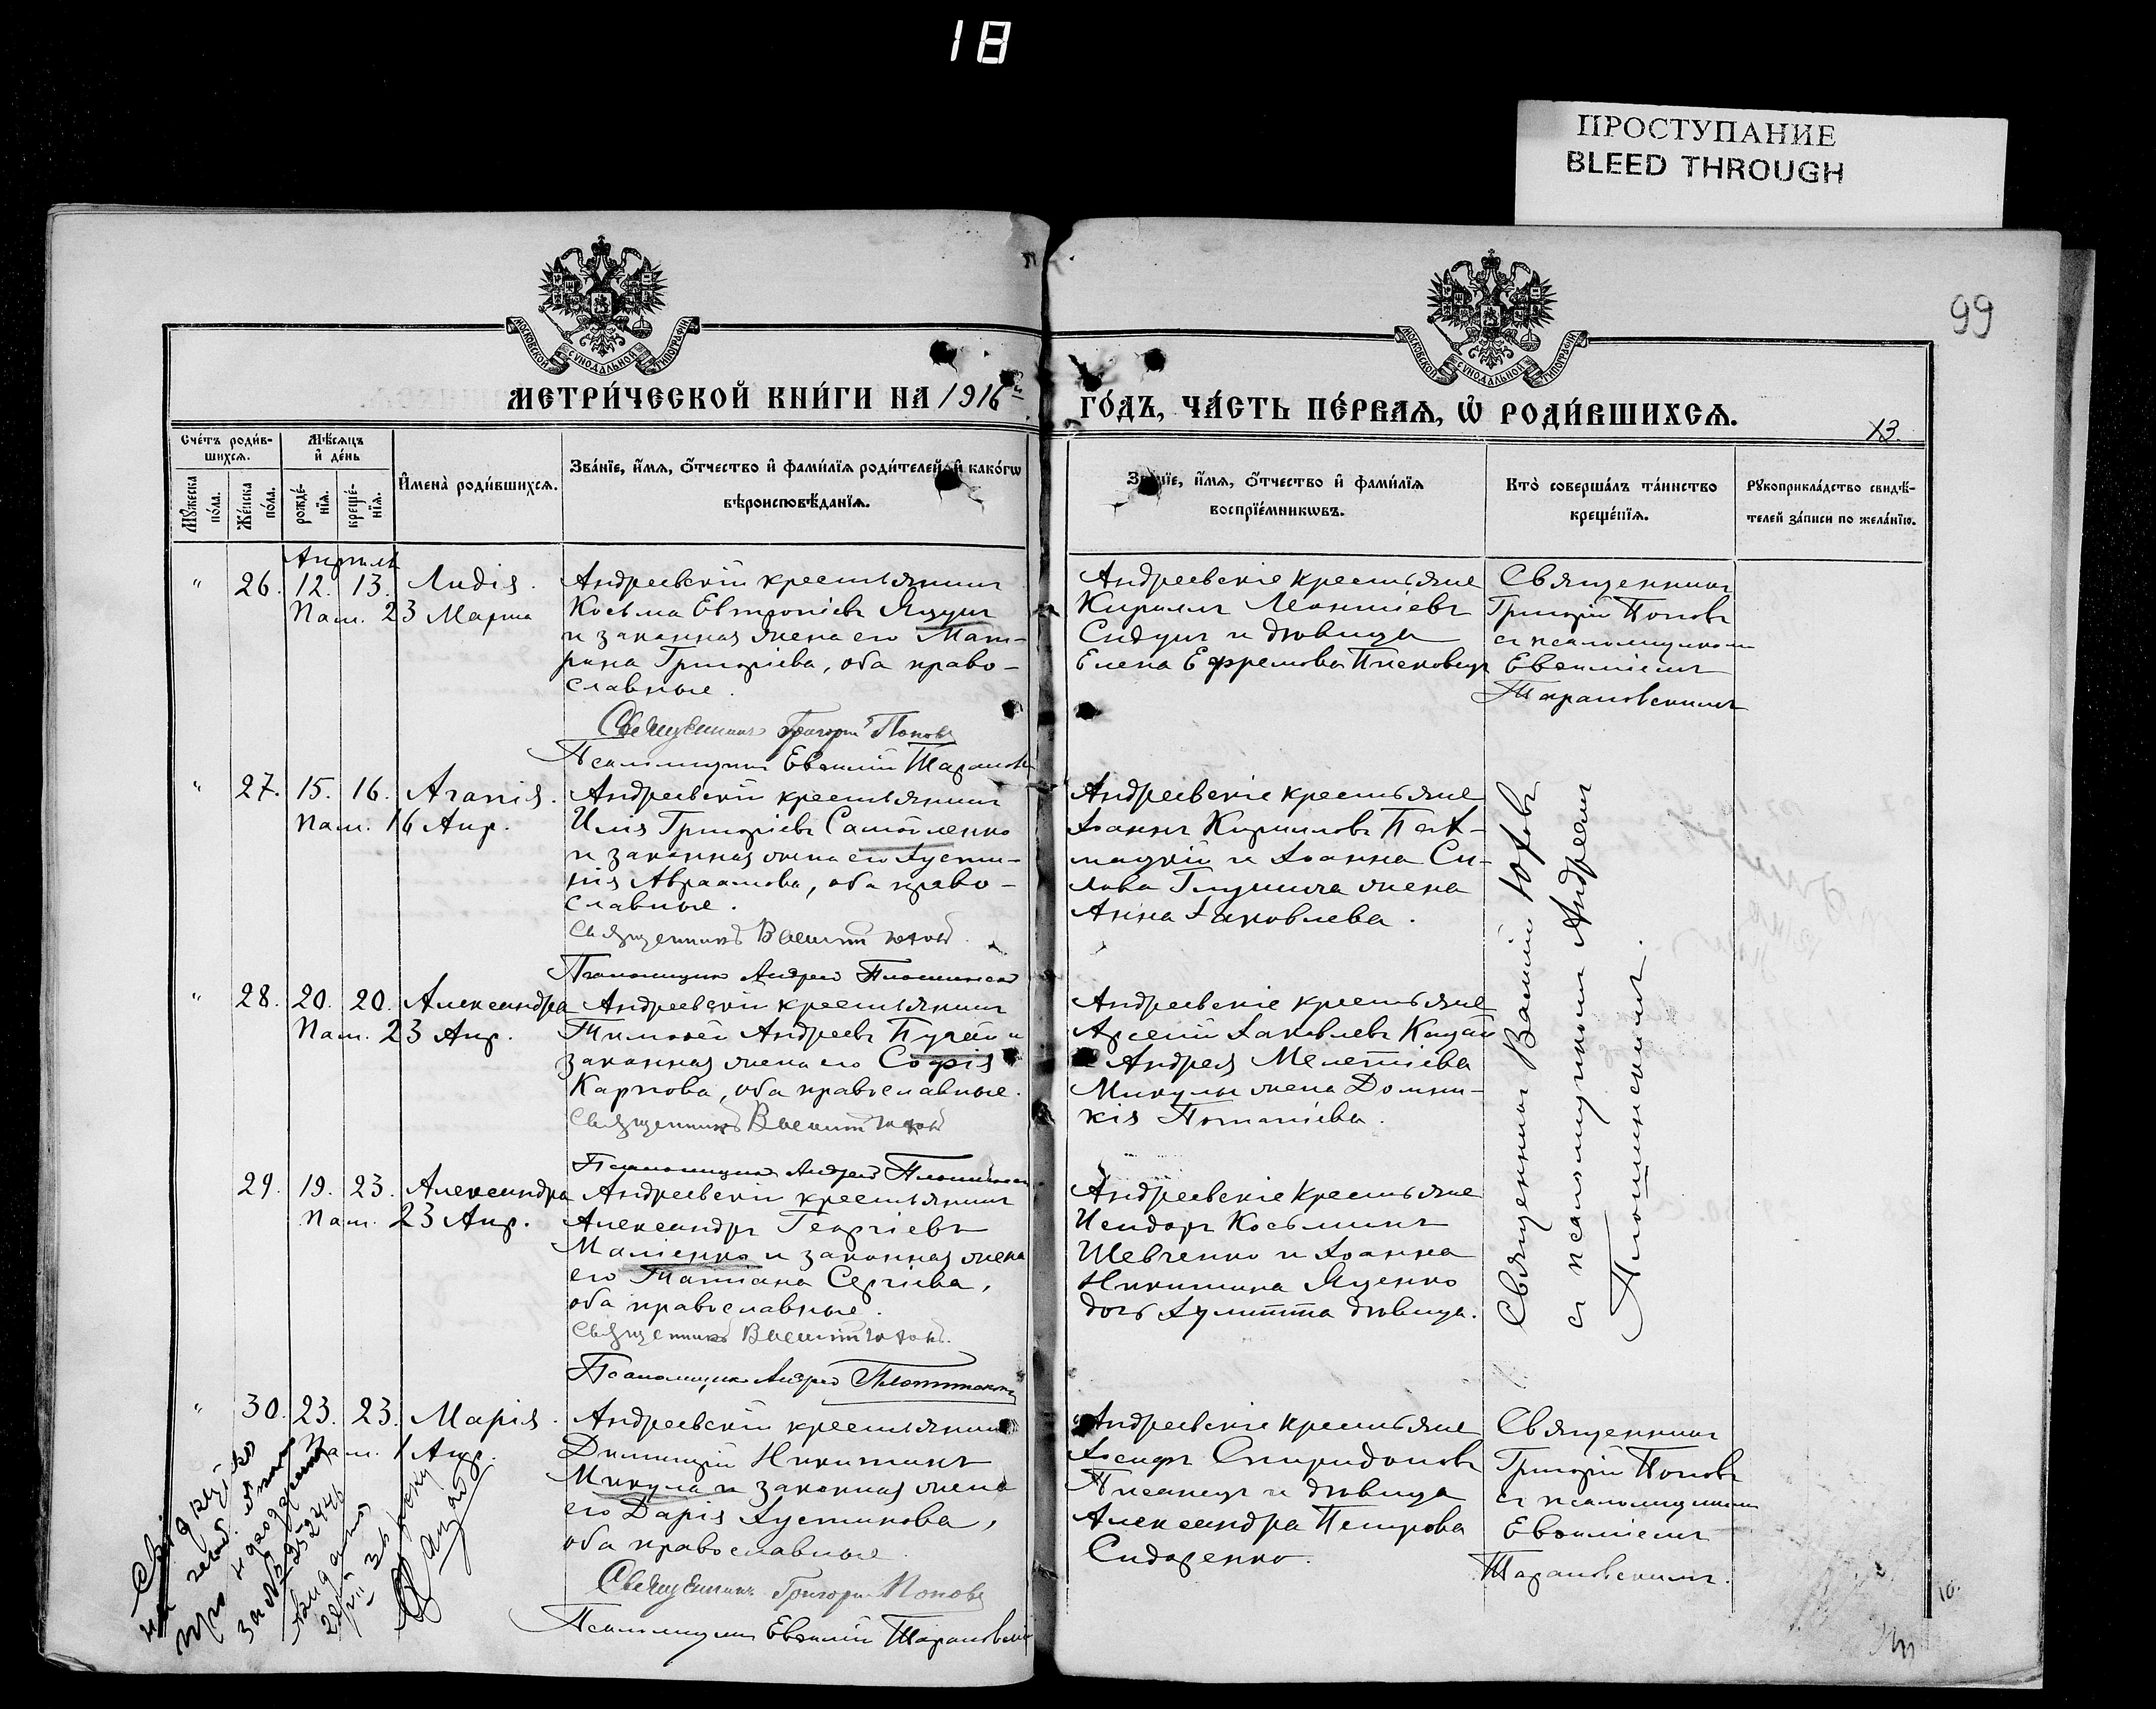 18
ПРОСТУПАНИЕ
BLEED THROUGH
99
МОСКОВСКОЙ СѴНОДАЛЬНОЙ ТИПОГРАФІИ
МОСКОВСКОЙ СѴНОДАЛЬНОЙ ТИПОГРАФІИ
МЕТРИ́ЧЕСКОЙ КНИ́ГИ НА 1916 й
ГО́ДЪ, ЧА́СТЬ ПЕ́РВАЯ, Ѡ РОДИ́ВШИХСЯ.
13.
Сче́тъ роди́в-
шихся.
Мꙋ́жеска по́ла.
Же́нска по́ла.
Мѣ́сяцъ и де́нь
рожде́-нїя.
креще́-нїя.
И҆мена̀ роди́вшихся.
Зва́нїе, и҆́мя, ѻ҆́тчество и҆ фами́лїя роди́телей, и҆ како́гѡ
вѣроисповѣ́данїя.
Зва́нїе, и҆́мя, ѻ҆́тчество и҆ фами́лїя
воспрїе́мникѡвъ.
Кто̀ соверша́лъ та́инство
креще́нїя.
Рꙋкоприкла́дство свидѣ́-
телей за́писи по жела́нїю.
Апрѣль
" 26. 12. 13. Лидія.
Пам. 23 Марта
Андреевскій крестьянинъ
Косьма Евтропіевъ Яцунъ
и законная жена его Мат-
рона Григоріева, оба право-
славные.
Священникъ Григорій Поповъ
Псаломщикъ Евѳимій Тарановскій
Андреевскіе крестьяне
Кириллъ Леонтіевъ
Сидунъ и дѣвица
Елена Ефремова
Священникъ
Григорій Поповъ
съ псаломщикомъ
Евѳиміемъ
Тарановскимъ
" 27. 15. 16. Агаѳія.
Пам. 16 Апр.
Андреевскій крестьянинъ
Илія Григоріевъ Самойленко
и законная жена его Іусти-
нія Авраамова, оба право-
славные.
Священникъ Василій Юховъ
Псаломщикъ Андрей Плошинскій
Андреевскіе крестьяне
Іоаннъ Кирилловъ
и Іоанна Си-
лова жена
Анна Іаковлева.
Священникъ Василій Юховъ
съ псаломщикомъ Андреемъ
Плошинскимъ.
" 28. 20. 20. Александра
Пам. 23 Апр.
Андреевскій крестьянинъ
Тимоѳей Андреевъ и
законная жена его Софія
Карпова, оба православные.
Священникъ Василій Юховъ
Псаломщикъ Андрей Плошинскій
Андреевскіе крестьяне
Арсеній Іаковлевъ
и Андрея Мелетіева
Микулы жена Домни-
кія Потапіева.
29. 19. 23. Александра
Пам. 23 Апр.
Андреевскій крестьянинъ
Александръ Георгіевъ
Маліенко и законная жена
его Татіана Сергіева,
оба православные.
Священникъ Василій Юховъ.
Псаломщикъ Андрей Плошинскій
Андреевскіе крестьяне
Исидоръ Косьминъ
Шевченко и Іоанна
Никитина Яценко
дочь Іулитта дѣвица.
" 30. 23. 23. Марія.
Пам. 1 Апр.
Андреевскій крестьянинъ
Димитрій Никитинъ
Микула и законная жена
его Дарія Іустинова,
оба православные.
Священникъ Григорій Поповъ
Псаломщикъ Евѳимій Тарановскій
Андреевскіе крестьяне
Іосифъ Спиридоновъ
и дѣвица
Александра Петрова
Сидоренко.
Священникъ
Григорій Поповъ
съ псаломщикомъ
Евѳиміемъ
Тарановскимъ.
10.